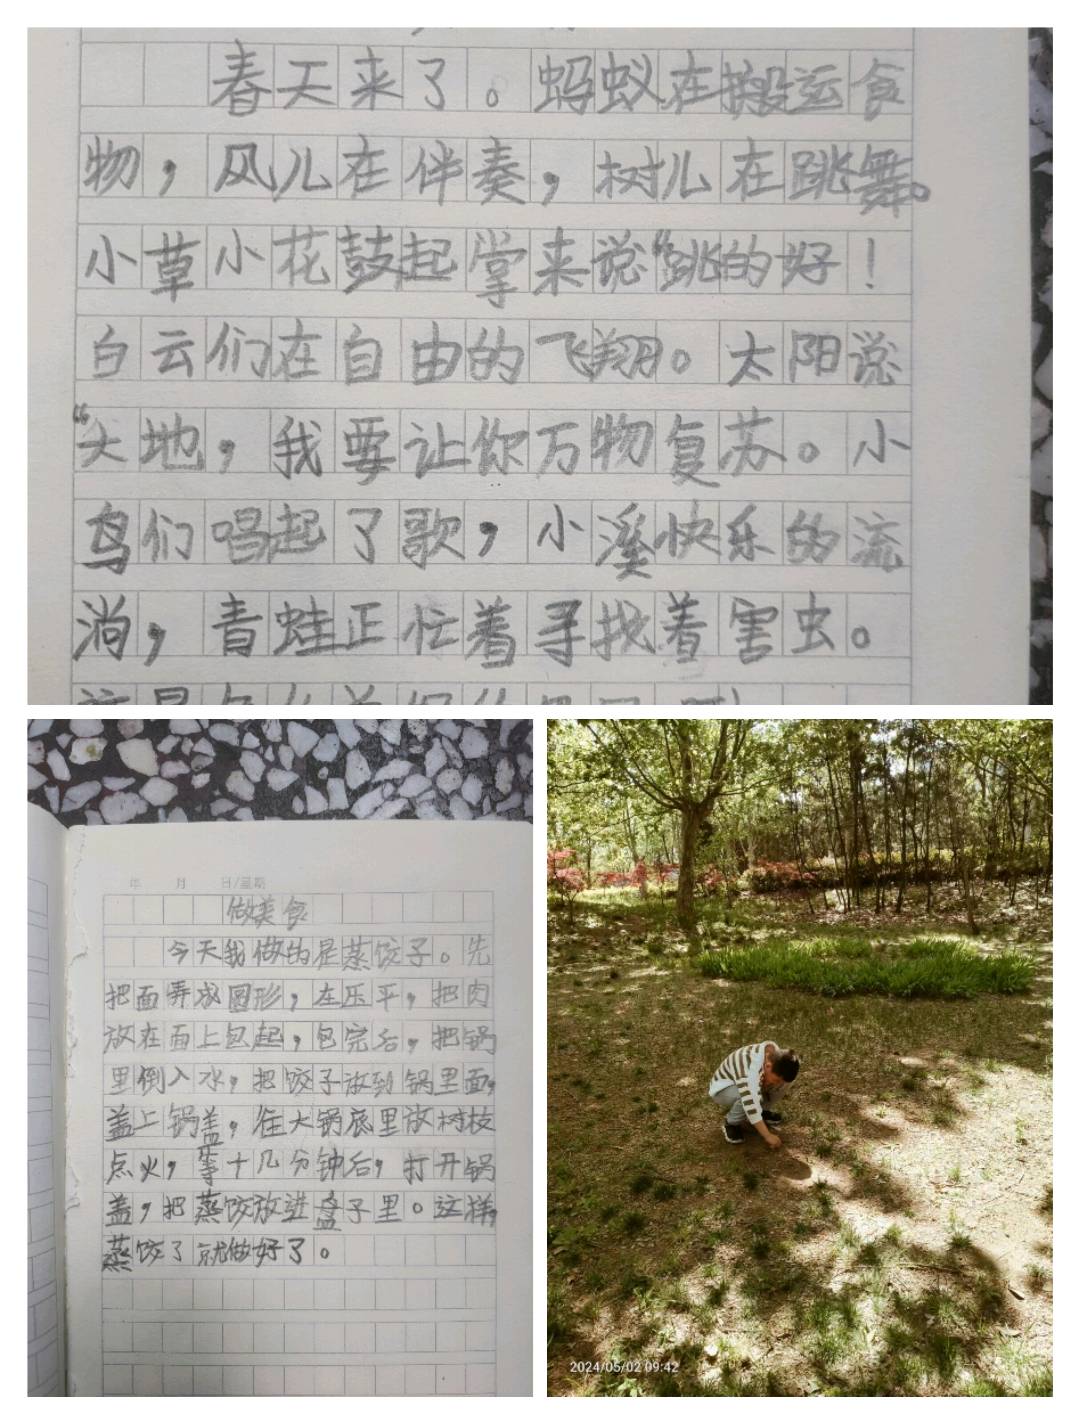 春天来了。蚂蚁在搬运食
物，风儿在伴奏，树儿在跳舞。
小草小花鼓起掌来说“跳的好！
白云们在自由的飞翔。太阳说
“大地，我要让你万物复苏。小
鸟们唱起了歌，小溪快乐的流
淌，青蛙正忙着寻找着害虫。
年 月 日/星期
做美食
今天我做的是蒸饺子。先
把面弄成圆形，在压平，把肉
放在面上包起，包完后，把锅
里倒入水，把饺子放到锅里面，
盖上锅盖，往大锅底里放树枝
点火，等十几分钟后，打开锅
盖，把蒸饺放进盘子里。这样，
蒸饺了就做好了。
2024/05/02 09:42